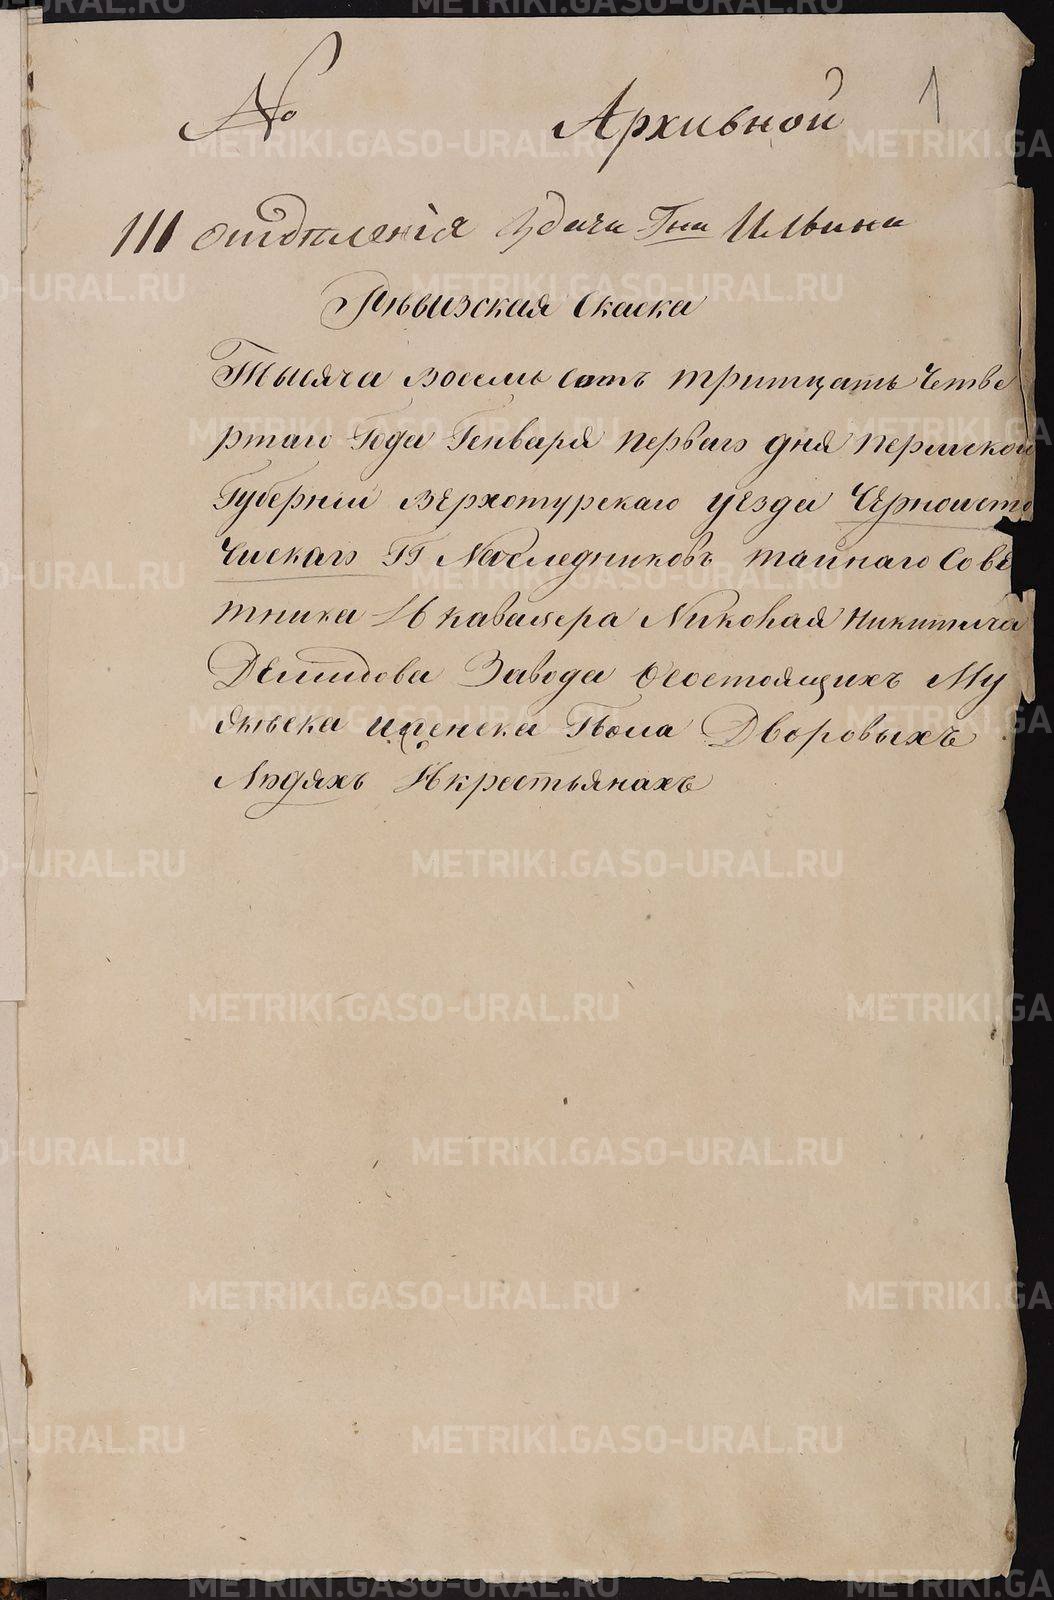 1
№ Архивной
III отдѣленія Здачи Гна Ильина
Ревизская Скаска
Тысяча восемь сотъ тритцать четве
ртаго Года Генваря перваго дня Пермской
Губерніи Верхотурскаго уезда Черноисто
чискаго ГГ Наследниковъ тайнаго Сове
тника И кавалера Николая Никитича
Демидова Завода осостоящихъ Му
жеска иженска Пола Дворовыхъ
Людяхъ Икрестьянахъ
METRIKI.GASO-URAL.RU